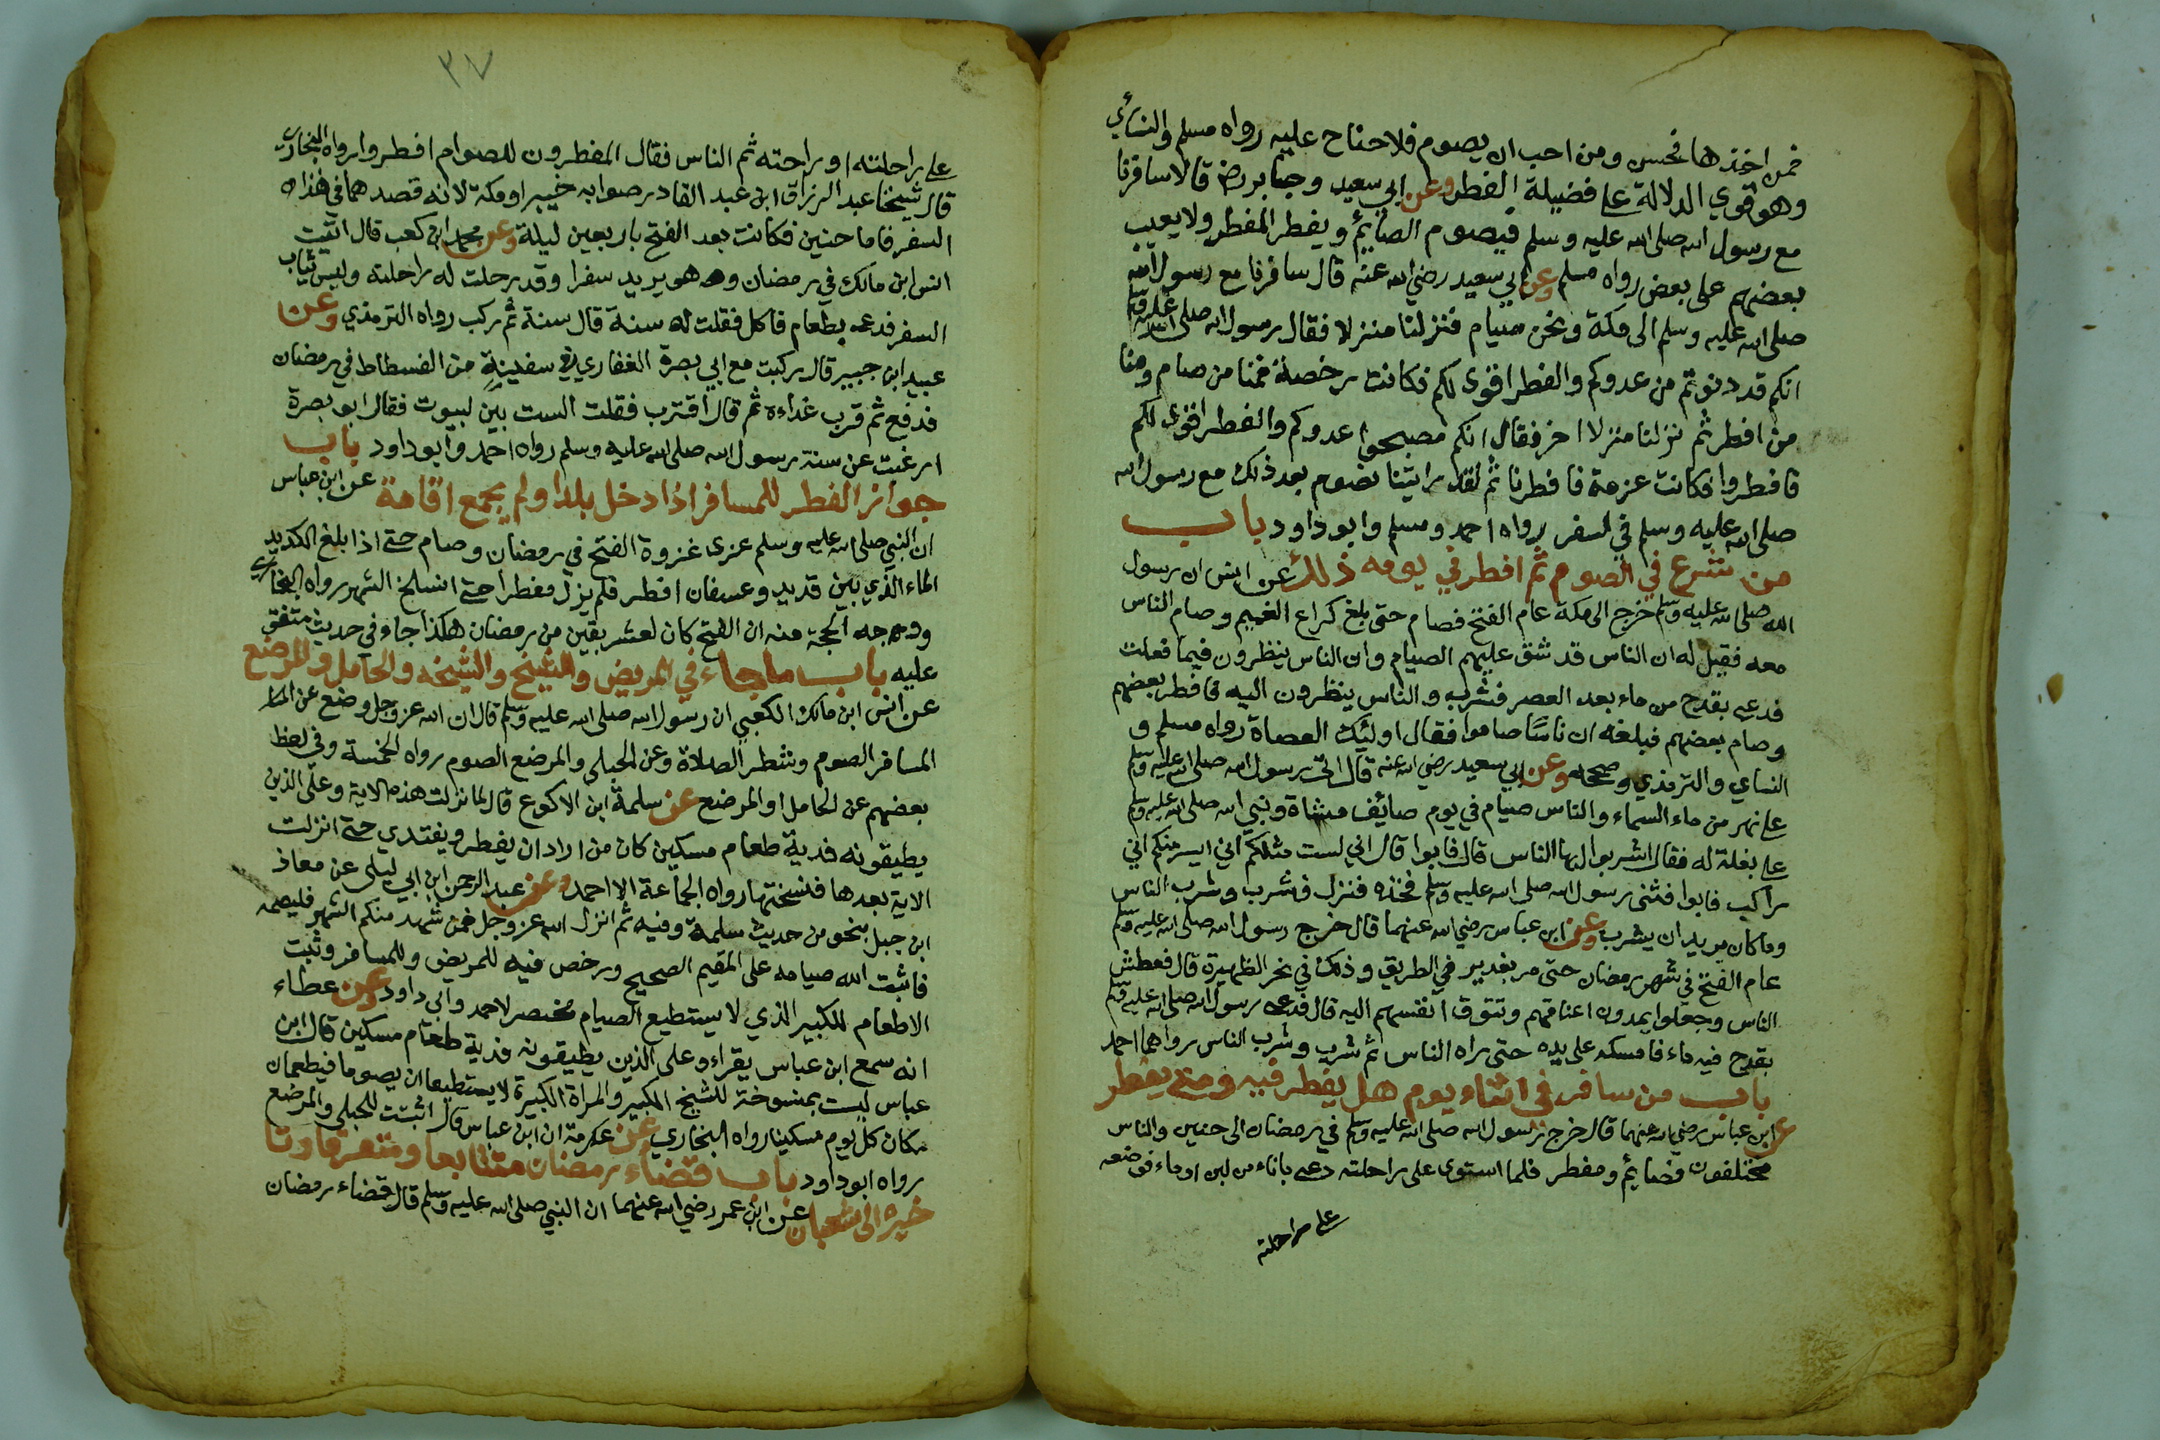 فمن اخذ ها فحسن ومن احب ان يصوم فلا جناح عليه رواه مسلم والنسائي
وهو قوي الدلالة على فضيلة الفطر وعن ابي سعيد وجابر رض قالا سافرنا
مع رسول الله صلى الله عليه وسلم فيصوم الصايم ويفطر المفطر ولا يعيب
بعضهم على بعض رواه مسلم وعن ابي سعيد رضي الله عنه قال سافرنا مع رسول الله
صلى الله عليه وسلم الى مكة ونحن صيام فنزلنا منزلا فقال رسول الله صلى الله عليه وسلم
انكم قد دنوتم من عدوكم والفطر اقوى لكم فكانت رخصة فمنا من صام ومنا
من افطر ثم نزلنا منزلا اخر فقال انكم مصبحوا عدوكم والفطر اقوى لكم
فافطروا فكانت عزمة فافطرنا ثم لقد رايتنا نصوم بعد ذلك مع رسول الله
صلى الله عليه وسلم في السفر رواه احمد ومسلم وابو داود باب
من شرع في الصوم ثم افطر في يومه ذلك عن انس ان رسول
الله صلى الله عليه وسلم خرج الى مكة عام الفتح فصام حتى بلغ كراع الغميم وصام الناس
معه فقيل له ان الناس قد شق عليهم الصيام وان الناس ينظرون فيما فعلت
فدعى بقدح من ماء بعد العصر فشرب والناس ينظرون اليه فافطر بعضهم
وصام بعضهم فبلغه ان ناسًا صاموا فقال اوليك العصاة رواه مسلم و
النساي والترمذي وصححه وعن ابي سعيد رضي الله عنه قال اتى رسول الله صلى الله عليه وسلم
على نهر من ماء السماء والناس صيام في يوم صائف مشاة ونبي الله صلى الله عليه وسلم
على بغلة له فقال اشربوا ايها الناس قال فابوا قال اني لست مثلكم اني ايسركم اني
راكب فابوا فثنى رسول الله صلى الله عليه وسلم فخذه فنزل فشرب وشرب الناس
وما كان يريد ان يشرب وعن ابن عباس رضي الله عنهما قال خرج رسول الله صلى الله عليه وسلم
عام الفتح في شهر رمضان حتى مر بغدير في الطريق وذلك في نحر الظهيرة قال فعطش
الناس وجعلوا يمدون اعناقهم وتتوق انفسهم اليه قال فدعى رسول الله صلى الله عليه وسلم
بقدح فيه ماء فامسكه على يده حتى راه الناس ثم شرب وشرب الناس رواهما احمد
باب من سافر في اثناء يوم هل يفطر فيه ومتى يفطر
عن ابن عباس رضي الله عنهما قال خرج رسول الله صلى الله عليه وسلم في رمضان الى حنين والناس
مختلفون فصايم ومفطر فلما استوى على راحلته دعى باناء من لبن او ماء فوضعه
على راحلته
٣٧
على راحلته او راحته ثم الناس فقال المفطرون للصوام افطروا رواه البخاري
قال شيخنا عبد الرزاق ابن عبد القادر صوابه خيبر او مكة لانه قصدهما في هذا
السفر فاما حنين فكانت بعد الفتح باربعين ليلة وعن محمد ابن كعب قال اتيت
انس ابن مالك في رمضان وهو يريد سفرا وقد رحلت له راحلته ولبس ثياب
السفر فدعى بطعام فاكل فقلت له سنة قال سنة ثم ركب رواه الترمذي وعن
عبيد ابن جبير قال ركبت مع ابي بصرة الغفاري في سفينة من الفسطاط في رمضان
فدفع ثم قرب غداءه ثم قال اقترب فقلت الست بين لبيوت فقال ابو بصرة
ارغبت عن سنة رسول الله صلى الله عليه وسلم رواه احمد وابو داود باب
جواز الفطر للمسافر اذا دخل بلدا ولم يجمع اقامة عن ابن عباس
ان النبي صلى الله عليه وسلم غزى غزوة الفتح في رمضان وصام حتى اذا بلغ الكديد
الماء الذي بين قديد وعسفان افطر فلم يزل مفطرا حتى انسلخ الشهر رواه البخاري
ووجه الحجة منه ان الفتح كان لعشر بقين من رمضان هكذا جاء في حديث متفق
عليه باب ما جاء في المريض والشيخ والشيخه والحامل والمرضع
عن انس ابن مالك الكعبي ان رسول الله صلى الله عليه وسلم قال ان الله عز وجل وضع عن
المسافر الصوم وشطر الصلاة وعن الحبلى والمرضع الصوم رواه الخمسة وفي لفظ
بعضهم عن الحامل او المرضع عن سلمة ابن الاكوع قال لما نزلت هذه الاية وعلى الذين
يطيقونه فدية طعام مسكين كان من اراد ان يفطر ويفتدي حتى انزلت
الاية بعدها فنسختها رواه الجماعة الا احمد وعن عبد الرحمن ابن ابي ليلى عن معاذ
ابن جبل بنحو من حديث سلمة وفيه ثم انزل الله عز وجل فمن شهد منكم الشهر فليصمه
فاثبت الله صيامه على المقيم الصحيح ورخص فيه للمريض وللمسافر وثبت
الاطعام للكبير الذي لا يستطيع الصيام مختصر لاحمد وابي داود وعن عطاء
انه سمع ابن عباس يقراء وعلى الذين يطيقونه فدية طعام مسكين قال ابن
عباس ليست بمنسوخة للشيخ الكبير والمراة الكبيرة لا يستطيعا ان يصوما فيطعمان
مكان كل يوم مسكينا رواه البخاري وعن عكرمة ان ابن عباس قال اثبتت للحبلى والمرضع
رواه ابو داود باب قضاء رمضان متتابعا ومتفرقا وتا
خيره الى شعبان عن ابن عمر رضي الله عنهما ان النبي صلى الله عليه وسلم قال قضاء رمضان